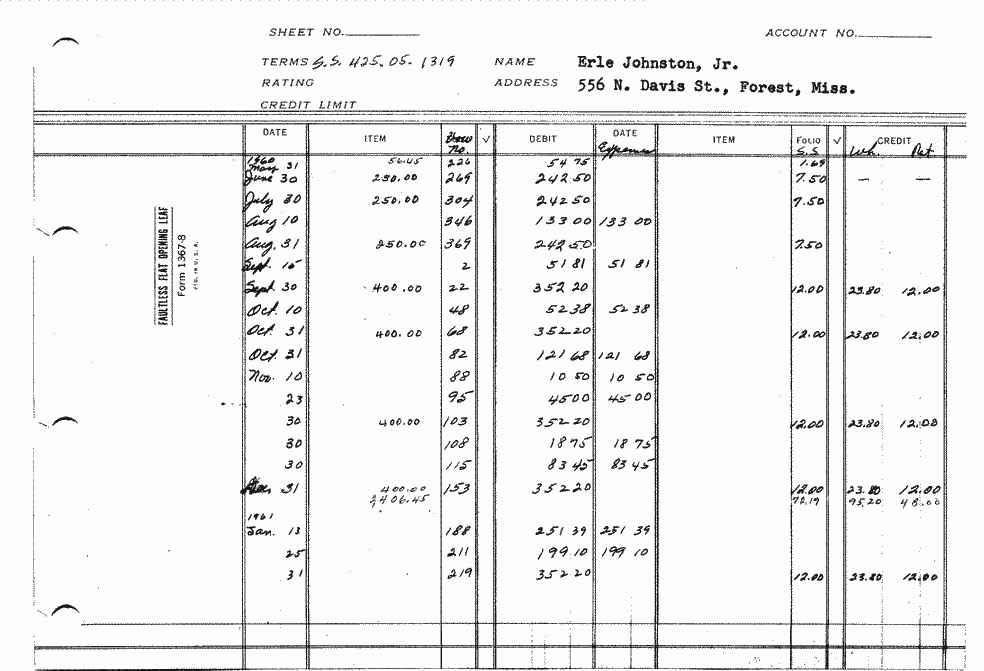 SHEET NO. ACCOUNT NO.
TERMS S.S. 425-05-1319 NAME Erle Johnston, Jr.
RATING ADDRESS 556 N. Davis St., Forest, Miss.
CREDIT LIMIT
DATE ITEM No. ✓ DEBIT DATE Expenses ITEM FOLIO S.S ✓ CREDIT Wh. Ret
1960
May 31 56.45 226 54 75 1.69
June 30 250.00 269 242.50 7.50 — —
July 30 250.00 304 242 50 7.50
Aug 10 346 133 00 133 00
Aug. 31 250.00 369 242 50 7.50
Sept. 15 2 51 81 51 81
Sept 30 400.00 22 352 20 12.00 23.80 12.00
Oct. 10 48 52 38 52 38
Oct. 31 400.00 68 352 20 12.00 23.80 12.00
Oct. 31 82 121 68 121 68
Nov. 10 88 10 50 10 50
23 95 45 00 45 00
30 400.00 103 352 20 12.00 23.80 12.00
30 108 18 75 18 75
30 115 83 45 83 45
Dec 31 400.00 153 352 20 12.00 23.80 12.00
2,406.45 72.19 95.20 48.00
1961
Jan. 13 188 251 39 251 39
25 211 199 10 199 10
31 219 352 20 12.00 23.80 12.00
FAULTLESS FLAT OPENING LEAF
Form 1367-8